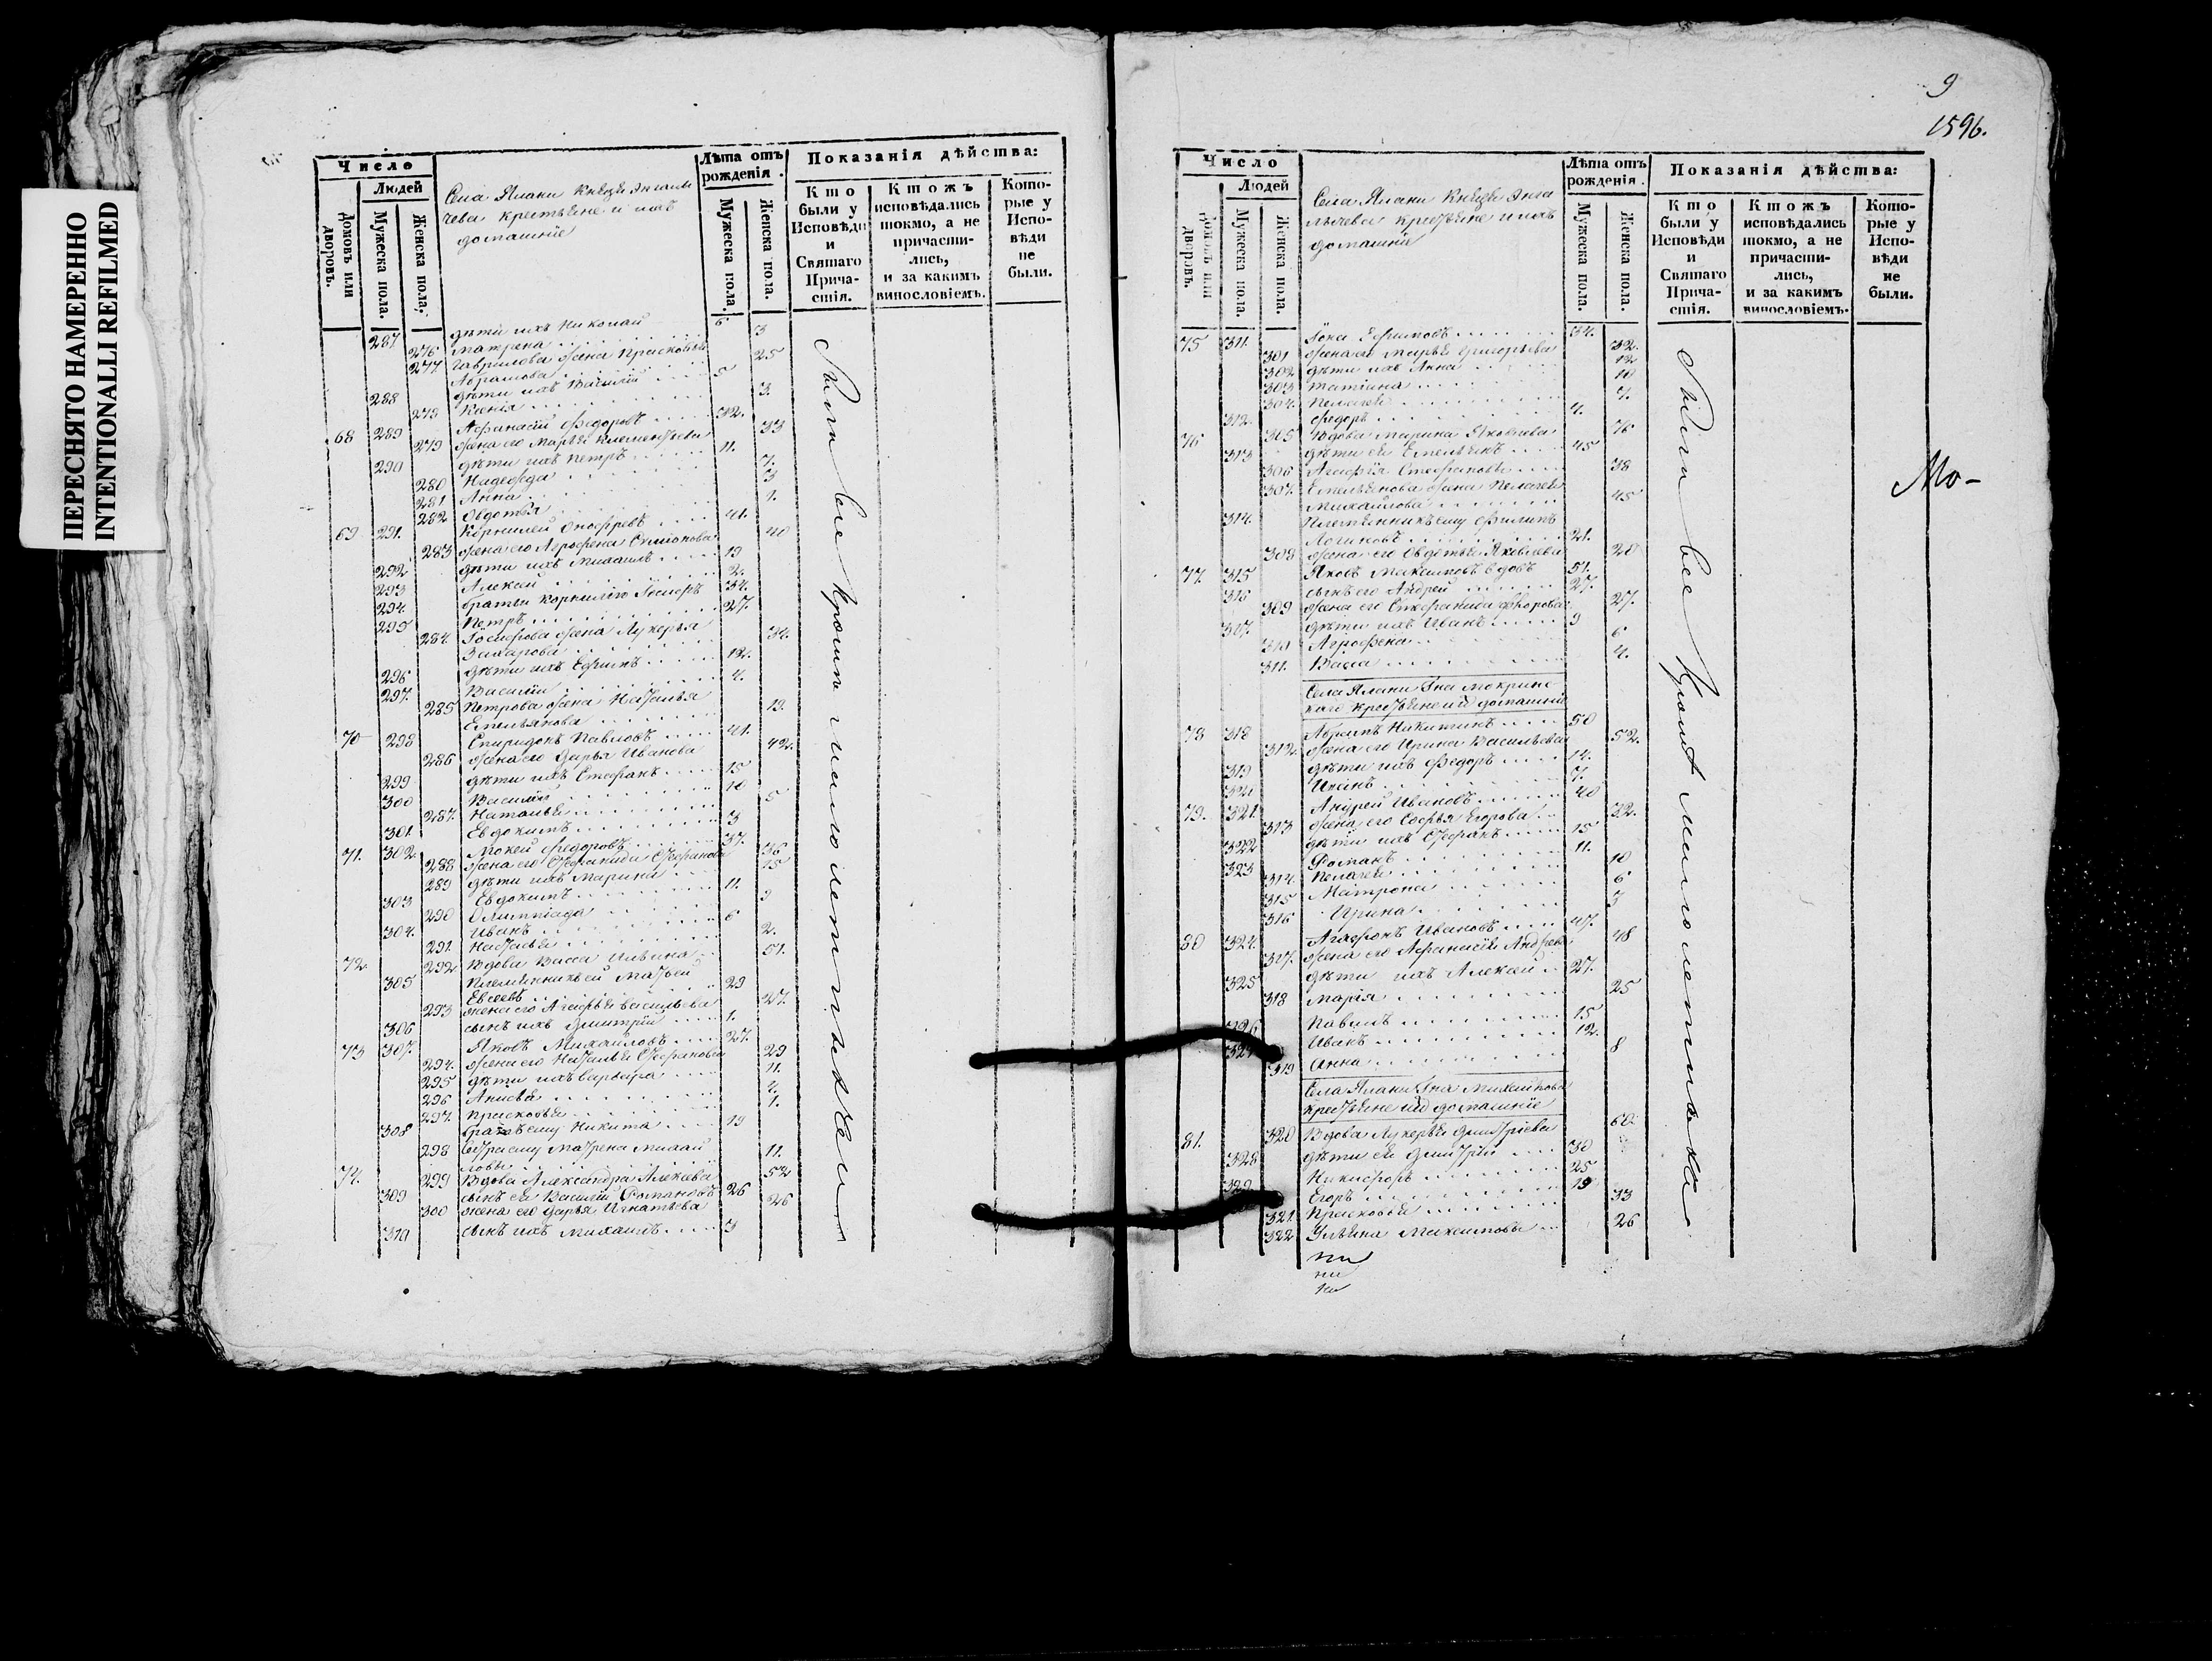 ПЕРЕСНЯТО НАМЕРЕННО
INTENTIONALLI REFILMED
Число
Людей
Домовъ или дворовъ.
Мужеска пола.
Женска пола.
Села Ялани Князя Энгалы
чева крестьяне и ихъ
домашніе
Лѣта отъ рожденія.
Мужеска пола.
Женска пола.
Показанія дѣйства:
Кто были у Исповѣди и Святаго Причастія.
Ктожъ исповѣдались токмо, а не причастились, и за какимъ винословіемъ.
Которые у Исповѣди не были.
287 дѣти ихъ Николай 6
276 Матрена 3
277 Гаврилова жена Прасковья 25
Абрамова
288 дѣти ихъ Василій 5
278 Ксенія 3.
68 289 Афанасій Федоровъ 32.
279 жена его Марья Климентьева 33
290 дѣти ихъ Петръ 11.
280 Надежда 7.
281 Анна 3
282 Овдотья 1.
69 291. Корнилей Онофревъ 41.
283 жена его Агрофена Симіонова 40
292 дѣти ихъ Михаилъ 19
293 Алексѣй 2.
294. братья Корнилію Іосифъ 34.
295 Петръ 27.
284. Іосифова жена Лукерья 34.
Захарова
296 дѣти ихъ Ефимъ 12.
297. Василій 4.
285 Петрова жена Наталья 19.
Емельянова
70 298 Спиридонъ Павловъ 41.
286 жена его Дарья Иванова 42.
299 дѣти ихъ Стефанъ 15
300 Василій 10
287. Наталья 5
301. Евдокимъ 3
71. 302. Мокей Федоровъ 37.
288 жена его Стефанида Стефанова 36
289 дѣти ихъ Марина 15
303 Евдокимъ 11.
290 Олимпіада 9
304. Иванъ 6
291. Настасья 2.
72. 292 Вдова Васса Ильина 51.
305 Племянникъ ей Матвей
Евсеевъ 29
293 жена его Агафья Васильева 27.
306 сынъ ихъ Дмитрій 1.
73 307. Яковъ Михайловъ 27.
294. жена его Наталья Стефанова 29
295 дѣти ихъ Варвара 11.
296 Анисья 4.
297. Прасковья 1.
308 Братъ ему Никита 19
298 Сестра ему Матрена Михай
лова 11.
74. 299 Вдова Александра Алексева 52
309 сынъ ея Василій Романовъ 26
300 жена его Дарья Игнатьева 26
310 сынъ ихъ Михаилъ 3
9
1596.
Число
Людей
Домовъ или дворовъ.
Мужеска пола.
Женска пола.
Села Ялани Князя Энга
лычева крестьяне и ихъ
домашніе
Лѣта отъ рожденія.
Мужеска пола.
Женска пола.
Показанія дѣйства:
Кто были у Исповѣди и Святаго Причастія.
Ктожъ исповѣдались токмо, а не причастились, и за какимъ винословіемъ.
Которые у Исповѣди не были.
75 311. Іона Ефимовъ 34.
301 жена его Марья Григорьева 32.
302 дѣти ихъ Анна 12
303 Татіана 10
304. Пелагея 7.
312. Федоръ 4.
76 305 Вдова Марина Яковлева 76
313 дѣти ея Емельянъ 45
306 Агафія Стефанова 38
307. Емельянова жена Пелагея 45
Михайлова
314. Племянникъ ему Филипъ
Логиновъ 21.
308 жена его Овдотья Яковлева 20
77. 315 Яковъ Максимовъ вдовъ 51.
316 сынъ его Андрей 27.
309 жена его Стефанида Федорова 27.
317. дѣти ихъ Иванъ 9
310 Агрофена 6
311. Васса 4.
Села Ялани Гна Мокринс
каго крестьяне и ихъ домашніе
78 318 Абрамъ Никитинъ 50
312. жена его Ирина Васильева 52.
319 дѣти ихъ Федоръ 14.
320 7.
79. 321. Андрей Ивановъ 40
313 жена его Софья Егорова 32.
322 дѣти ихъ Стефанъ 15
323 Романъ 11.
314. Пелагея 10
315 Матрона 6
316 Ирина 3
80 324. Агафонъ Ивановъ 47.
317. жена его Афанасія Андреева 48
325 дѣти ихъ Алексѣй 27.
318 Марія 25
326 Павилъ 15
327 Иванъ 12.
319 Анна 8
Села Ялани Гна
крестьяне и ихъ домашніе
81. 320 Вдова Лукерья Дмитріева 60
328 дѣти ея Дмитрій 30
329 Никифоръ 25
Егоръ 19
321. Прасковья 33
322 Ульяна Максимова 26
Мо-